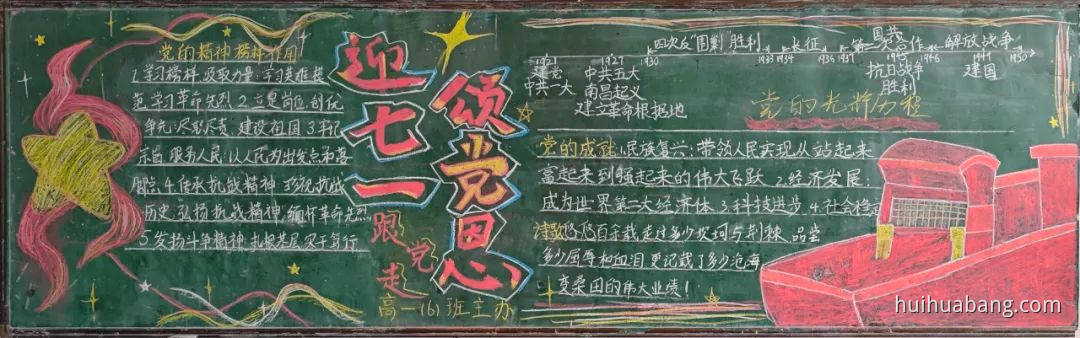 党的精神榜样作用
1.学习榜样 汲取力量 学习英雄模
范 学习革命先烈 2.立足岗位 创优
争先:尽职尽责,建设祖国 3.牢记
宗旨 服务人民:以人民为出发点和落
脚点.4.传承抗战精神
历史 弘扬抗战精神,缅怀革命先烈
5.发扬斗争精神 扎根基层
迎七一
颂党恩
跟党走
高一(6)班主办
四次反"围剿"胜利 长征 第二次 国共合作 解放战争
1921 1927 1930 1933 1934 1936 1937 1945 1946 1949 1950
建党 中共五大 抗日战争 建国
中共一大 南昌起义 胜利
建立革命根据地
党的光辉历程
党的成就:1.民族复兴:带领人民实现从站起来
富起来到强起来的伟大飞跃 2.经济发展:
成为世界第二大经济体 3.科技进步 4.社会稳定
百余载 走过多少坎坷与荆棘 品尝
多少屈辱和血泪 更记载了多少沧海
变桑田的伟大业绩!
huihuabang.com